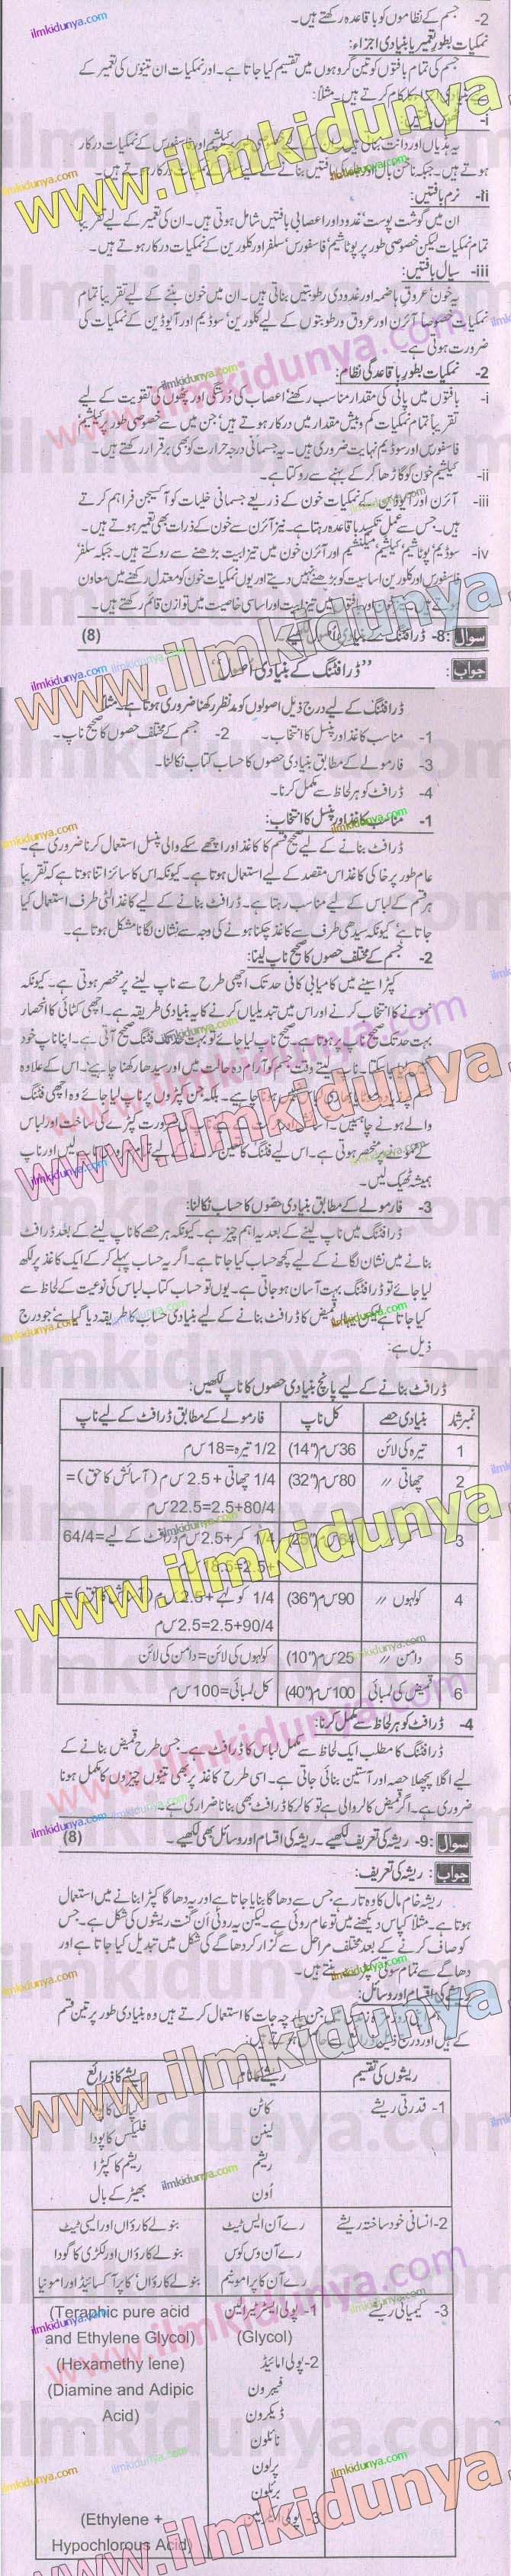 2- جسم کے نظاموں کو باقاعدہ رکھتے ہیں۔
نمکیات بطور تعمیر یا بنیادی اجزاء:
جسم کی تمام بافتوں کو تین گروہوں میں تقسیم کیا جاتا ہے۔ اور نمکیات ان تینوں کی تعمیر کے
کام کرتے ہیں۔ مثلاً:
i-
یہ ہڈیاں اور دانت بناتی ہیں کیلشیم اور فاسفورس کے نمکیات درکار
ہوتے ہیں۔ جبکہ ناخن بال اور بافتیں بنانے کے نمکیات درکار ہوتے ہیں۔
ii- نرم بافتیں:
ان میں گوشت پوست' غدود اور اعصابی بافتیں شامل ہوتی ہیں۔ ان کی تعمیر کے لیے تقریباً
تمام نمکیات لیکن خصوصی طور پر پوٹاشیم' فاسفورس' سلفر اور کلورین کے نمکیات درکار ہوتے ہیں۔
iii- سیال بافتیں:
یہ خون' عروق ہاضمہ اور غدودی رطوبتیں بناتی ہیں۔ ان میں خون بننے کے لیے تقریباً تمام
نمکیات خصوصاً آئرن اور عروق و رطوبتوں کے لیے کلورین' سوڈیم اور آیوڈین کے نمکیات کی
ضرورت ہوتی ہے۔
2- نمکیات بطور باقاعدگی نظام:
i- بافتوں میں پانی کی مقدار مناسب رکھنے' اعصاب کی درستگی اور پٹھوں کی تقویت کے لیے
تقریباً تمام نمکیات کم و بیش مقدار میں درکار ہوتے ہیں' جن میں سے خصوصی طور پر کیلشیم'
فاسفورس اور سوڈیم نہایت ضروری ہیں۔ یہ جسمانی درجہ حرارت کو بھی برقرار رکھتے ہیں۔
ii- کیلشیم خون کو گاڑھا کر کے بہنے سے روکتا ہے۔
iii- آئرن اور آیوڈین کے نمکیات خون کے ذریعے جسمانی خلیات کو آکسیجن فراہم کرتے
ہیں۔ جس سے عمل تکسید باقاعدہ رہتا ہے۔ نیز آئرن سے خون کے ذرات بھی تعمیر ہوتے ہیں۔
iv- سوڈیم' پوٹاشیم' کیلشیم' میگنیشیم اور آئرن خون میں تیزابیت بڑھنے سے روکتے ہیں۔ جبکہ سلفر'
فاسفورس اور کلورین اساسیت کو بڑھنے نہیں دیتے اور یوں نمکیات خون کو معتدل رکھنے میں معاون
ہوتے ہیں۔ میں تیزابیت اور اساسی خاصیت میں توازن قائم رکھتے ہیں۔
سوال 8:- ڈرافٹنگ کے بنیادی اصول لکھیے۔ (8)
جواب: ''ڈرافٹنگ کے بنیادی اصول''
ڈرافٹنگ کے لیے درج ذیل اصولوں کو مدنظر رکھنا ضروری ہوتا ہے۔ مثلاً
1- مناسب کاغذ اور پنسل کا انتخاب۔ 2- جسم کے مختلف حصوں کا صحیح ناپ۔
3- فارمولے کے مطابق بنیادی حصوں کا حساب کتاب نکالنا۔
4- ڈرافٹ کو ہر لحاظ سے مکمل کرنا۔
1- مناسب کاغذ اور پنسل کا انتخاب:
ڈرافٹ بنانے کے لیے صحیح قسم کا کاغذ اور اچھے سکے والی پنسل استعمال کرنا ضروری ہے۔
عام طور پر خاکی کاغذ اس مقصد کے لیے استعمال ہوتا ہے۔ کیونکہ اس کا سائز اتنا ہوتا ہے کہ تقریباً
ہر قسم کے لباس کے لیے مناسب رہتا ہے۔ ڈرافٹ بنانے کے لیے کاغذ الٹی طرف استعمال کیا
جاتا ہے' کیونکہ سیدھی طرف سے کاغذ چکنا ہونے کی وجہ سے نشان لگانا مشکل ہوتا ہے۔
2- جسم کے مختلف حصوں کا صحیح ناپ لینا:
کپڑا سینے میں کامیابی کافی حد تک اچھی طرح سے ناپ لینے پر منحصر ہوتی ہے۔ کیونکہ
نمونے کا انتخاب کرنے اور اس میں تبدیلیاں کرنے کا یہ بنیادی طریقہ ہے۔ اچھی کٹائی کا انحصار
بہت حد تک صحیح ناپ پر ہوتا ہے۔ صحیح ناپ لیا جائے تو بہت فٹنگ صحیح آتی ہے۔ اپنا ناپ خود
جاسکتا۔ ناپ لیتے وقت جسم کو آرام دہ حالت میں اور سیدھا رکھنا چاہیے۔ اس کے علاوہ
چاہیے۔ بلکہ جن کپڑوں پر ناپ لیا جائے وہ اچھی فٹنگ
والے ہونے چاہئیں۔ ضرورت کپڑے کی ساخت اور لباس
کے نمونے پر منحصر ہوتی ہے۔ اس لیے فٹنگ کا لیں اور ناپ
ہمیشہ ٹھیک لیں۔
3- فارمولے کے مطابق بنیادی حصوں کا حساب نکالنا:
ڈرافٹنگ میں ناپ لینے کے بعد یہ اہم چیز ہے۔ کیونکہ ہر حصے کا ناپ لینے کے بعد ڈرافٹ
بنانے میں نشان لگانے کے لیے کچھ حساب کیا جاتا ہے۔ اگر یہ حساب پہلے کر کے ایک کاغذ پر لکھ
لیا جائے تو ڈرافٹنگ بہت آسان ہو جاتی ہے۔ یوں تو حساب کتاب لباس کی نوعیت کے لحاظ سے
کیا جاتا ہے لیکن یہاں قمیض کا ڈرافٹ بنانے کے لیے بنیادی حساب کا طریقہ دیا گیا ہے' جو درج
ذیل ہے:
ڈرافٹ بنانے کے لیے پانچ بنیادی حصوں کا ناپ لکھیں:
نمبر شمار بنیادی حصے کل ناپ فارمولے کے مطابق ڈرافٹ کے لیے ناپ
1 تیرہ کی لائن 36س م (14") 1/2 تیرہ=18 س م
2 چھاتی // 80س م (32") 1/4 چھاتی + 2.5 س م (آسائش کا حق)=
80/4+2.5=22.5 س م
3 64س م (25") 1/4 کمر+2.5 س م ڈرافٹ کے لیے=64/4
4 کولہوں // 90س م (36") 1/4 کولہے+2.5 س م
90/4+2.5=2.5 س م
5 دامن // 25س م (10") کولہوں کی لائن=دامن کی لائن
6 قمیض کی لمبائی 100س م (40") کل لمبائی=100 س م
4- ڈرافٹ کو ہر لحاظ سے مکمل کرنا:
ڈرافٹنگ کا مطلب ایک لحاظ سے مکمل لباس کا ڈرافٹ ہے۔ جس طرح قمیض بنانے کے
لیے اگلا پچھلا حصہ اور آستین بنائی جاتی ہے۔ اسی طرح کاغذ پر بھی تینوں چیزوں کا مکمل ہونا
ضروری ہے۔ اگر قمیض کالر والی ہے تو کالر کا ڈرافٹ بھی بنانا ضراری ہے۔
سوال 9:- ریشہ کی تعریف لکھیے۔ ریشہ کی اقسام اور وسائل بھی لکھیے۔ (8)
جواب: ریشہ کی تعریف:
ریشہ خام مال کا وہ تار ہے جس سے دھاگا بنایا جاتا ہے اور یہ دھاگا کپڑا بنانے میں استعمال
ہوتا ہے۔ مثلاً کپاس دیکھنے میں تو عام روئی ہے۔ لیکن یہ روئی ان گنت ریشوں کی شکل ہے۔ جس
کو صاف کرنے کے بعد مختلف مراحل سے گزار کر دھاگے کی شکل میں تبدیل کیا جاتا ہے اور
دھاگے سے تمام سوتی کپڑے بنتے ہیں۔
ریشہ کی اقسام اور وسائل:
جن پارچہ جات کا استعمال کرتے ہیں وہ بنیادی طور پر تین قسم
کے ہیں اور درج ذیل
ریشوں کی تقسیم ریشے کا نام ریشے کا ذرائع
1- قدرتی ریشے کاٹن کپاس کا پودا
لینن فلیکس کا پودا
ریشم ریشم کا کیڑا
اُون بھیڑ کے بال
2- انسانی خود ساختہ ریشے رے آن ایس ٹیٹ بنولے کا رؤاں اور ایسی ٹیٹ
رے آن وس کوس بنولے کا رؤاں اور لکڑی کا گودا
رے آن کاپرامونیم بنولے کا رؤاں' کاپر آکسائیڈ اور امونیا
3- کیمیائی ریشے 1- پولی ایسٹر (Teraphic pure acid
(Glycol) and Ethylene Glycol)
2- پولی امائیڈ (Hexamethy lene)
فیبرون (Diamine and Adipic
ڈیکرون Acid)
نائلون
پرلون
برئلون
3- (Ethylene +
Hypochlorous Acid)
ilmkidunya.com
www.ilmkidunya.com